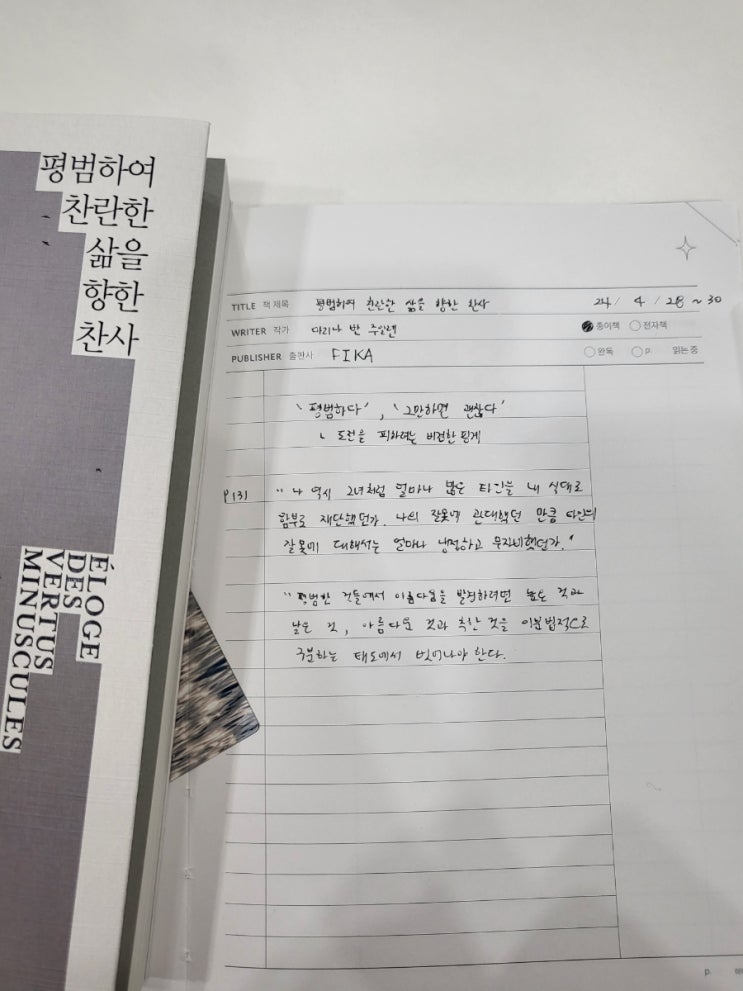 평범하여
찬란한
삶을
향한
찬사
ÉLOGE
DES
VERTUS
MINUSCULES
TITLE 책 제목 평범하여 찬란한 삶을 향한 찬사 24/ 4 / 28 ~ 30
WRITER 작가 마리나 반 주일렌 종이책 전자책
PUBLISHER 출판사 FIKA 완독 p. 읽는 중
'평범하다', '그만하면 괜찮다'
ㄴ 도전을 피하려는 비겁한 핑계
P131 "나 역시 그녀처럼 얼마나 많은 타인을 내 식대로
함부로 재단했던가. 나의 잘못에 관대했던 만큼 타인의
잘못에 대해서는 얼마나 냉정하고 무자비했던가."
"평범한 것들에서 아름다움을 발견하려면 높은 것과
낮은 것, 아름다운 것과 추한 것을 이분법적으로
구분하는 태도에서 벗어나야 한다.
p.